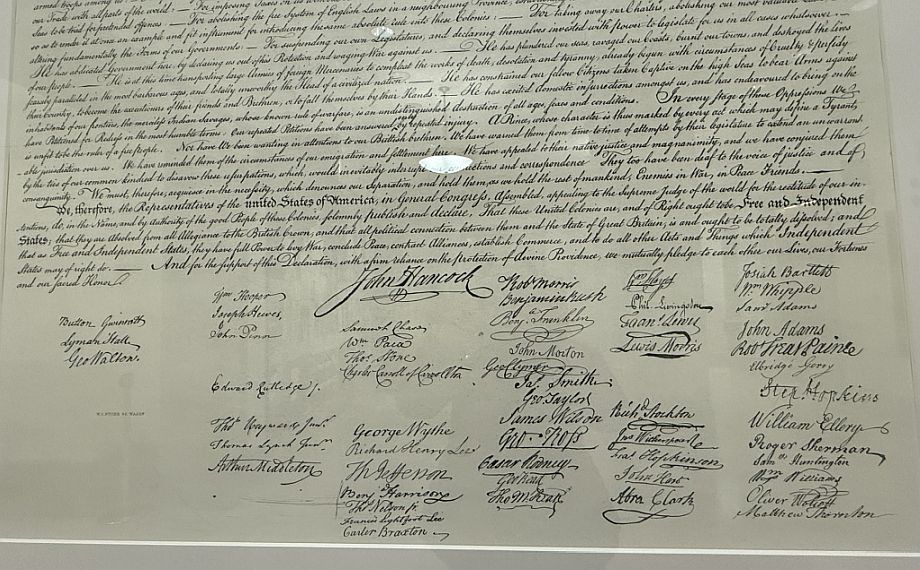 armed troops among us :
our Trade with all parts of the world : — For imposing Taxes on us without our Consent :
Seas to be tried for pretended offences : — For abolishing the free System of English Laws in a neighbouring Province, — For taking away our Charters, abolishing our most valuable Laws
so as to render it at once an example and fit instrument for introducing the same absolute rule into these Colonies : —
altering fundamentally the Forms of our Governments : — For suspending our own Legislatures, and declaring themselves invested with power to legislate for us in all cases whatsoever. —
He has abdicated Government here, by declaring us out of his Protection and waging War against us. — He has plundered our seas, ravaged our Coasts, burnt our towns, and destroyed the lives
of our people. — He is at this time transporting large Armies of foreign Mercenaries to compleat the works of death, desolation and tyranny, already begun with circumstances of Cruelty & perfidy
scarcely paralleled in the most barbarous ages, and totally unworthy the Head of a civilized nation. — He has constrained our fellow Citizens taken Captive on the high Seas to bear Arms against
their Country, to become the executioners of their friends and Brethren, or to fall themselves by their Hands. — He has excited domestic insurrections amongst us, and has endeavoured to bring on the
inhabitants of our frontiers, the merciless Indian Savages, whose known rule of warfare, is an undistinguished destruction of all ages, sexes and conditions. In every stage of these Oppressions We
have Petitioned for Redress in the most humble terms: Our repeated Petitions have been answered only by repeated injury. A Prince, whose character is thus marked by every act which may define a Tyrant,
is unfit to be the ruler of a free people. Nor have We been wanting in attentions to our Brittish brethren. We have warned them from time to time of attempts by their legislature to extend an unwarrant
able jurisdiction over us. We have reminded them of the circumstances of our emigration and settlement here. We have appealed to their native justice and magnanimity, and we have conjured them
by the ties of our common kindred to disavow these usurpations, which, would inevitably interrupt our connections and correspondence They too have been deaf to the voice of justice and of
consanguinity. We must, therefore, acquiesce in the necessity, which denounces our Separation, and hold them, as we hold the rest of mankind, Enemies in War, in Peace Friends. —
We, therefore, the Representatives of the united States of America, in General Congress, Assembled, appealing to the Supreme Judge of the world for the rectitude of our in-
tentions, do, in the Name, and by authority of the good People of these Colonies, solemnly publish and declare, That these United Colonies are, and of Right ought to be Free and Independent
States; that they are Absolved from all Allegiance to the British Crown, and that all political connection between them and the State of Great Britain, is and ought to be totally dissolved; and
that as Free and Independent States, they have full Power to levy War, conclude Peace, contract Alliances, establish Commerce, and to do all other Acts and Things which Independent
States may of right do. — And for the support of this Declaration, with a firm reliance on the protection of divine Providence, we mutually pledge to each other our Lives, our Fortunes
and our sacred Honor.
Button Gwinnett
Lyman Hall
Geo Walton.
Wm Hooper
Joseph Hewes,
John Penn
Edward Rutledge /.
Thos Heyward Junr.
Thomas Lynch Junr.
Arthur Middleton
John Hancock
Samuel Chase
Wm Paca
Thos Stone
Charles Carroll of Carrollton
George Wythe
Richard Henry Lee
Th Jefferson
Benj Harrison
Thos Nelson jr.
Francis Lightfoot Lee
Carter Braxton
Robt Morris
Benjamin Rush
Benj Franklin
John Morton
Geo Clymer
Jas Smith
Geo Taylor
James Wilson
Geo Ross
Caesar Rodney
Geo Read
Tho M:Kean
Wm Floyd
Phil. Livingston
Frans Lewis
Lewis Morris
Richd Stockton
Jno Witherspoon
Fras Hopkinson
John Hart
Abra Clark
Josiah Bartlett
Wm Whipple
Saml Adams
John Adams
Robt Treat Paine
Elbridge Gerry
Step Hopkins
William Ellery
Roger Sherman
Saml Huntington
Wm Williams
Oliver Wolcott
Matthew Thornton